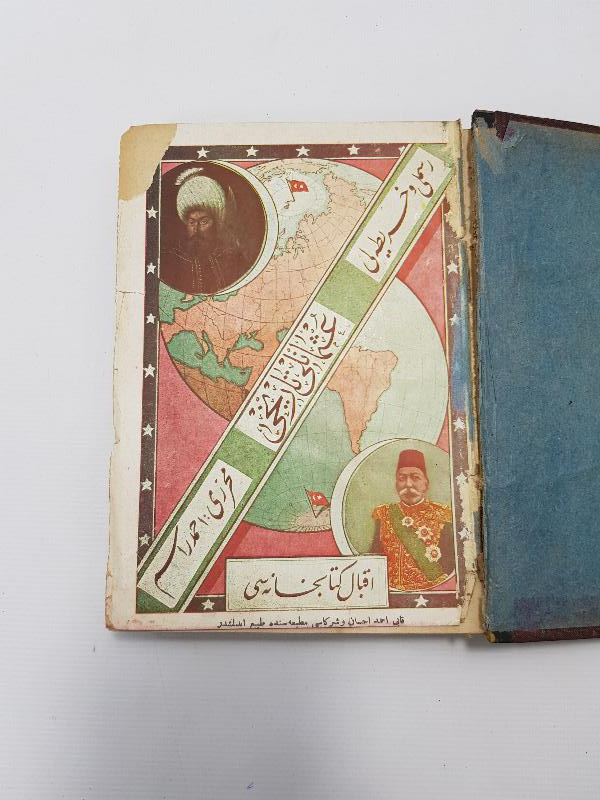 رسملی و خریطه‌لی
عثمانلی تاریخی
محرری : احمد راسم
اقبال کتابخانه سی
قابی احمد احسان و شرکاسی مطبعه سنده طبع ایدلمشدر